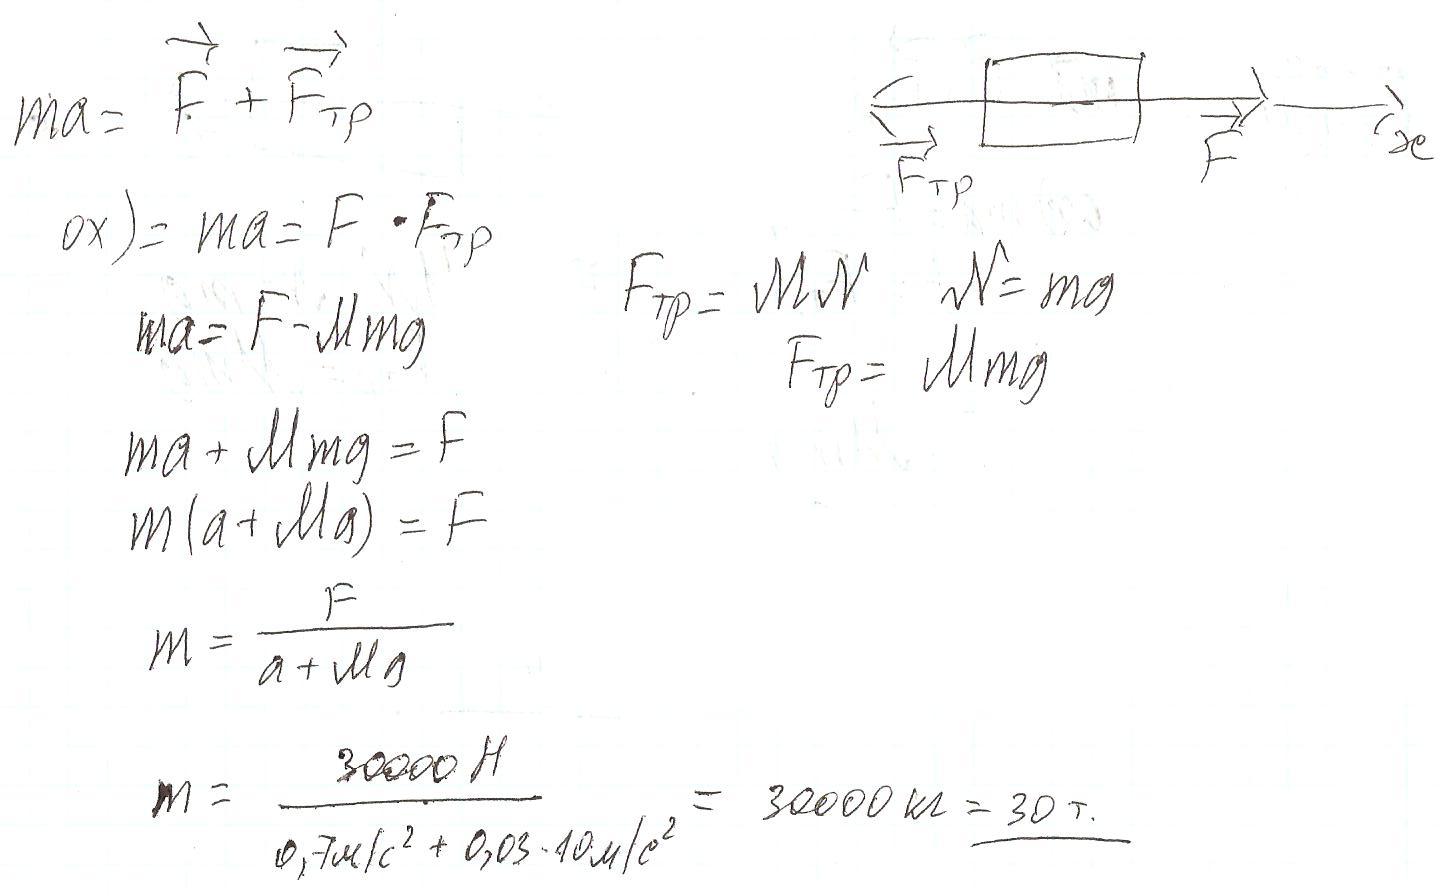 ma = F + Fтр
Fтр F x
ox) = ma = F · Fтр
Fтр = MN N = mg
ma = F - Mmg
Fтр = Mmg
ma + Mmg = F
m(a + Mg) = F
m = F / a + Mg
m = 30000 Н / 0,7м/с² + 0,03·10м/с² = 30000 кг = 30 т.